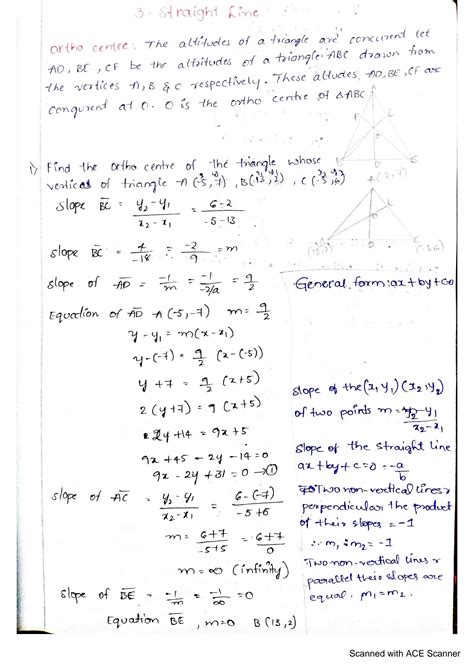 3. Straight Line
Ortho centre: The altitudes of a triangle are concurent let
AD, BE, CF be the altitudes of a triangle ABC drawn from
the vertices A, B & C respectively. These altudes AD, BE, CF are
conqurent at O. O is the ortho centre of △ABC
F
D
1) Find the ortho centre of the triangle whose
vertices of triangle A(-5,-7), B(13,2), C(-5,6)
A(-5,-7)
(13,2)
D
(-5,6)
Slope BC = y2-y1/x2-x1 = 6-2/-5-13
slope BC = 4/-18 = -2/9 = m
slope of AD = -1/m = -1/-2/9 = 9/2
General form: ax+by+c=0
Equation of AD A(-5,-7) m = 9/2
y-y1 = m(x-x1)
y-(-7) = 9/2 (x-(-5))
y+7 = 9/2 (x+5)
2(y+7) = 9(x+5)
2y+14 = 9x+5
9x+45-2y-14=0
9x-2y+31=0 →①
Slope of the (x1,y1) (x2,y2)
of two points m = y2-y1/x2-x1
slope of the straight line
ax+by+c=0 = -a/b
Two non-vertical lines r
perpendicular the product
of their slopes = -1
∴ m1 × m2 = -1
Two non-vertical lines r
parallel their slopes are
equal. m1=m2.
slope of AC = y2-y1/x2-x1 = 6-(-7)/-5+5
m = 6+7/-5+5 = 6+7/0
m = ∞ (infinity)
slope of BE = -1/m = -1/∞ = 0
Equation BE, m=0 B(13,2)
Scanned with ACE Scanner